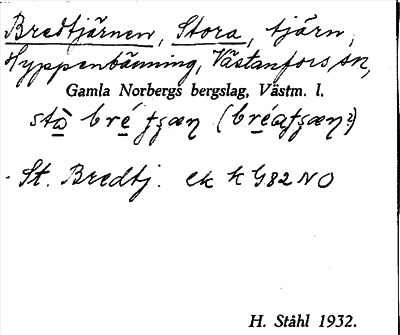 Bredtjärnen, Stora, tjärn,
Hyppenbänning, Västanfors sn,
Gamla Norbergs bergslag, Västm. l.
stà bré
St. Bredtj. ek k G82 NO
H. Ståhl 1932.